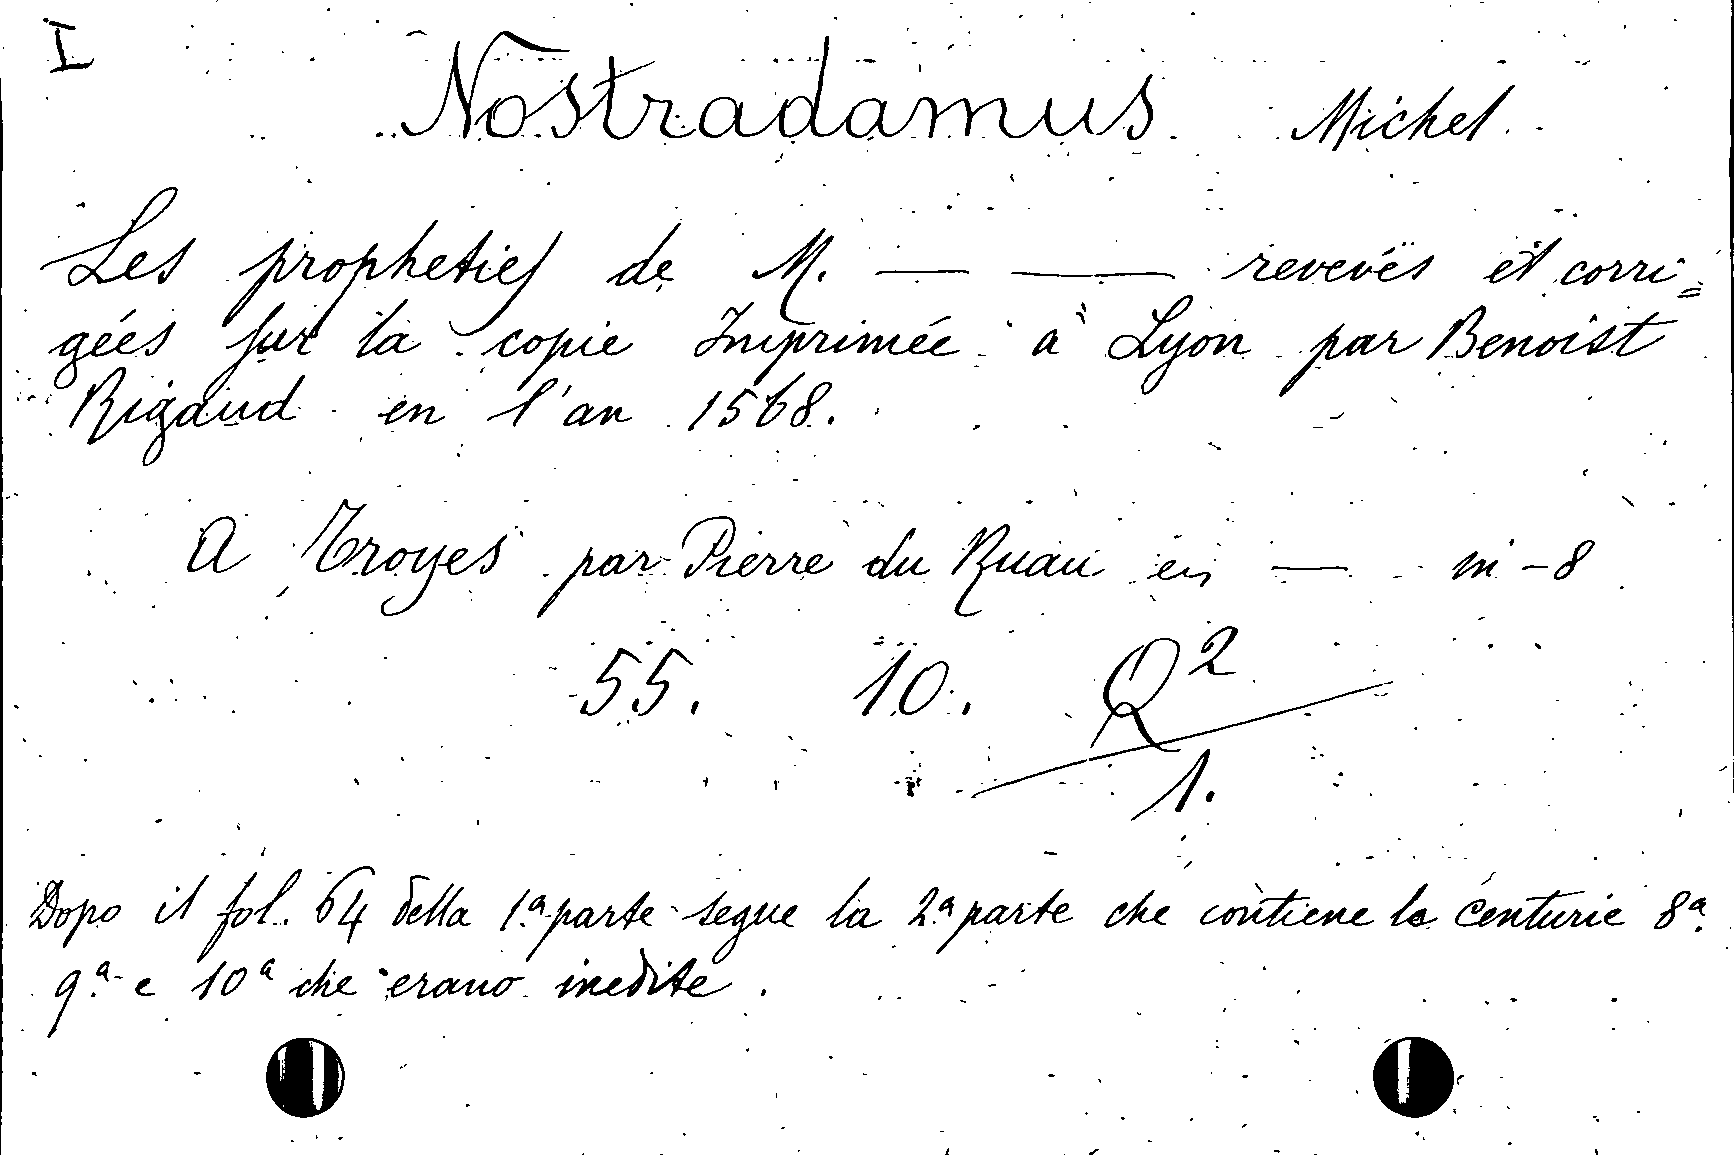 I
Nostradamus Michel
Les propheties de M. — — reveüës et corri=
gées sur la copie Imprimée à Lyon par Benoist
Rigaud en l'an 1568.
A Troyes par Pierre du Ruau en — in-8
55. 10. Q2
1.
Dopo il fol. 64 della 1ª parte segue la 2ª parte che contiene le centurie 8ª.
9ª. e 10ª che erano inedite.